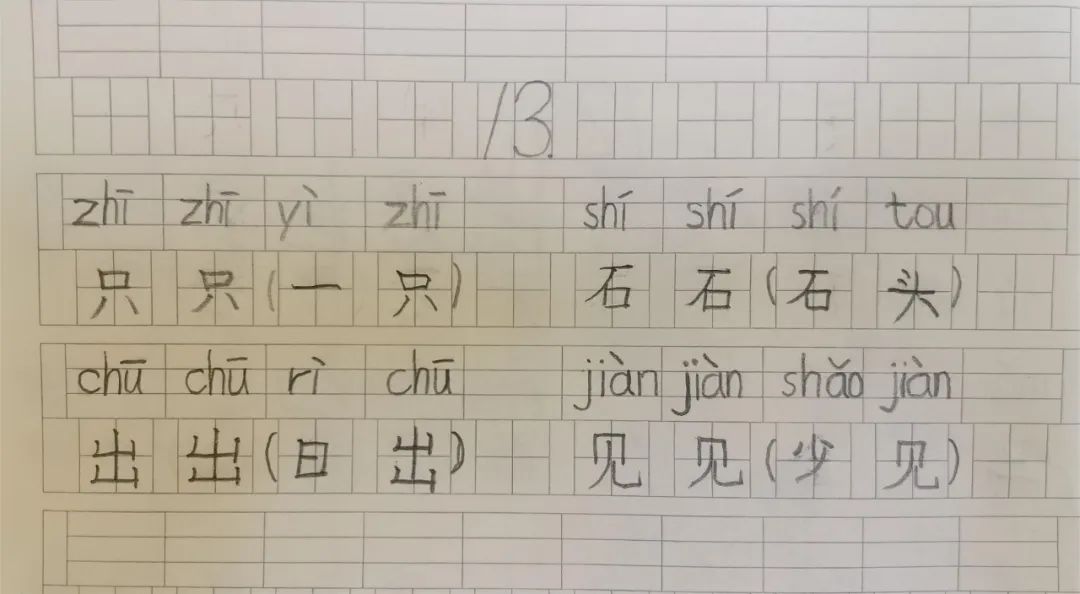 13
zhī zhī yì zhī shí shí shí tou
只 只（一 只） 石 石（石 头）
chū chū rì chū jiàn jiàn shǎo jiàn
出 出（日 出） 见 见（少 见）